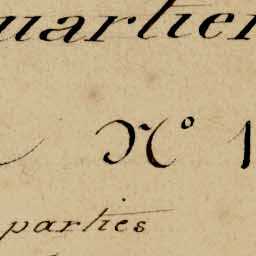 uartier
N° 1
parties